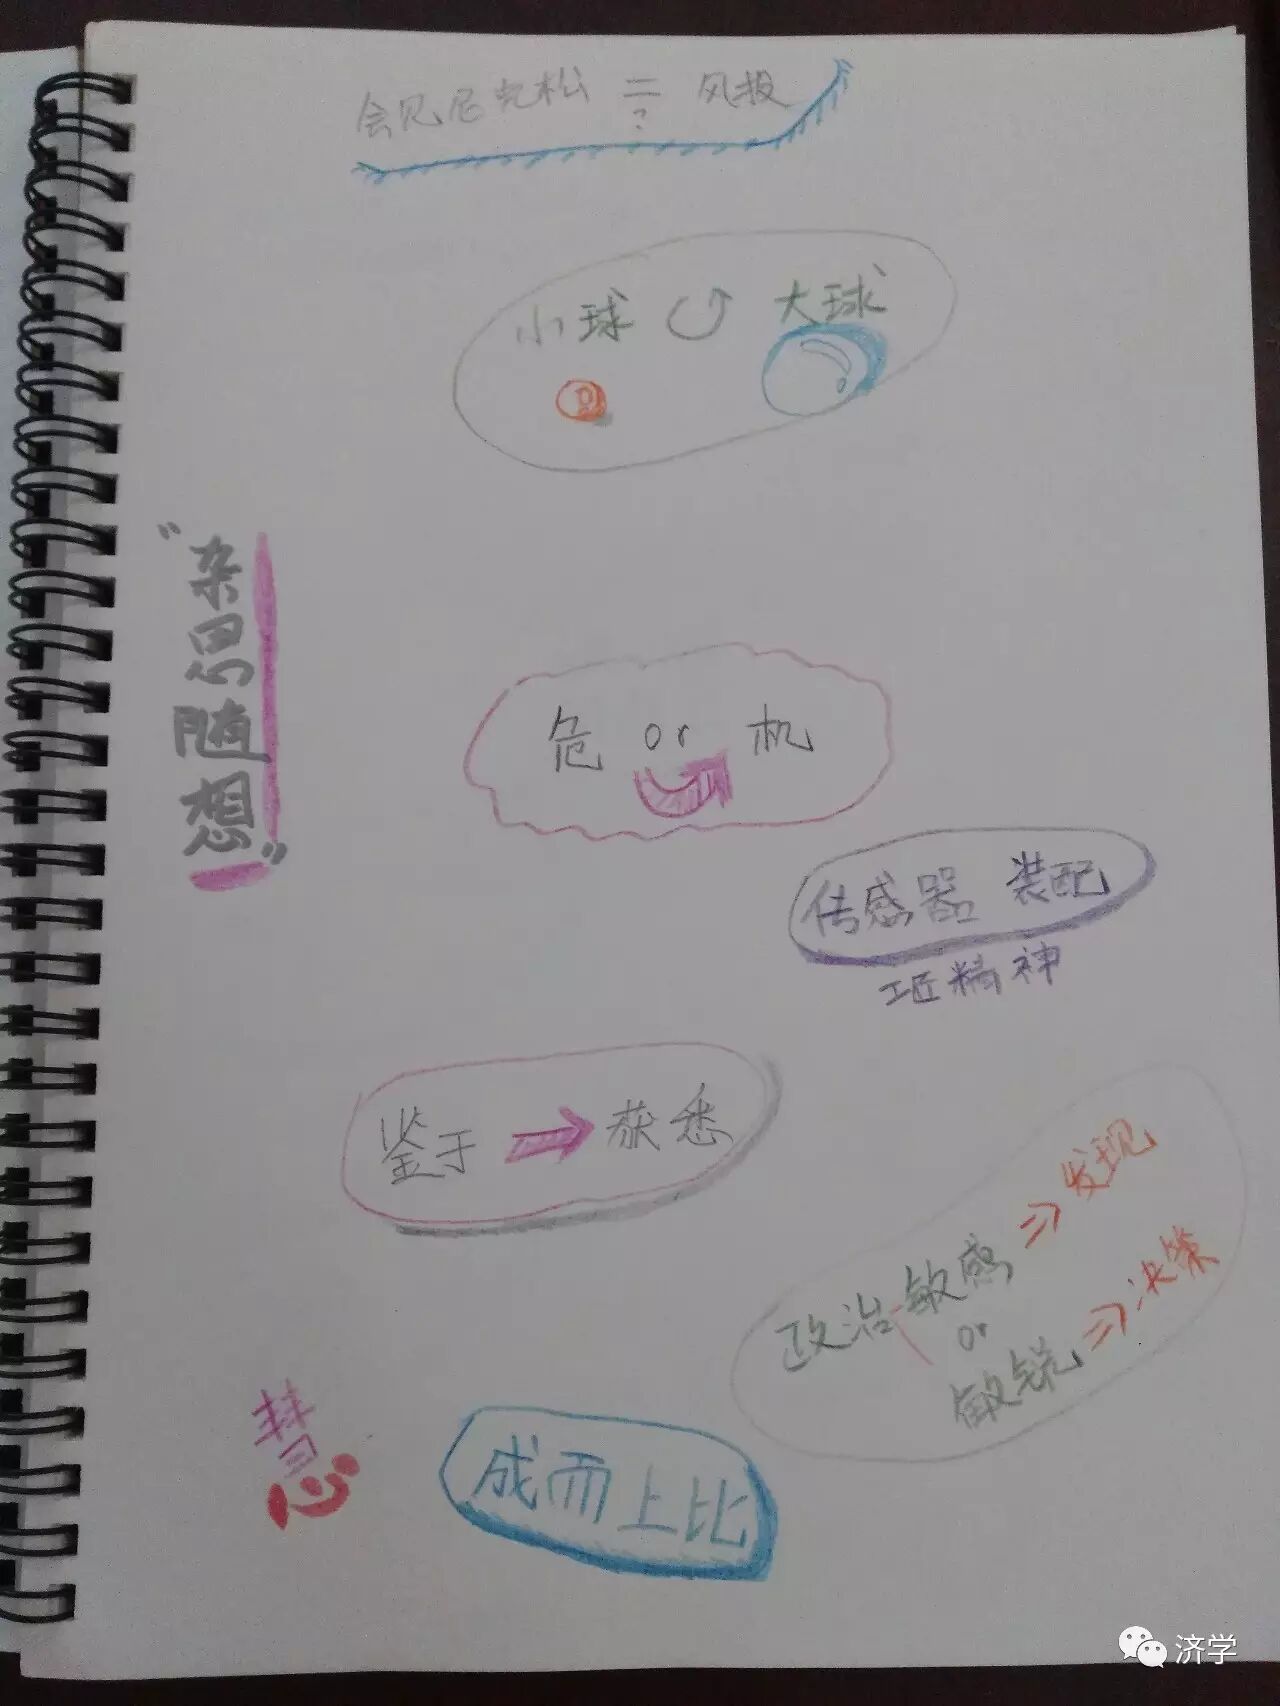 会见尼克松 = 风投
?
小球 大球
“杂思随想”
危 or 机
传感器 装配
工匠精神
鉴于 获悉
政治敏感 => 发现
or
敏锐 => 决策
慧
成而上比
济学